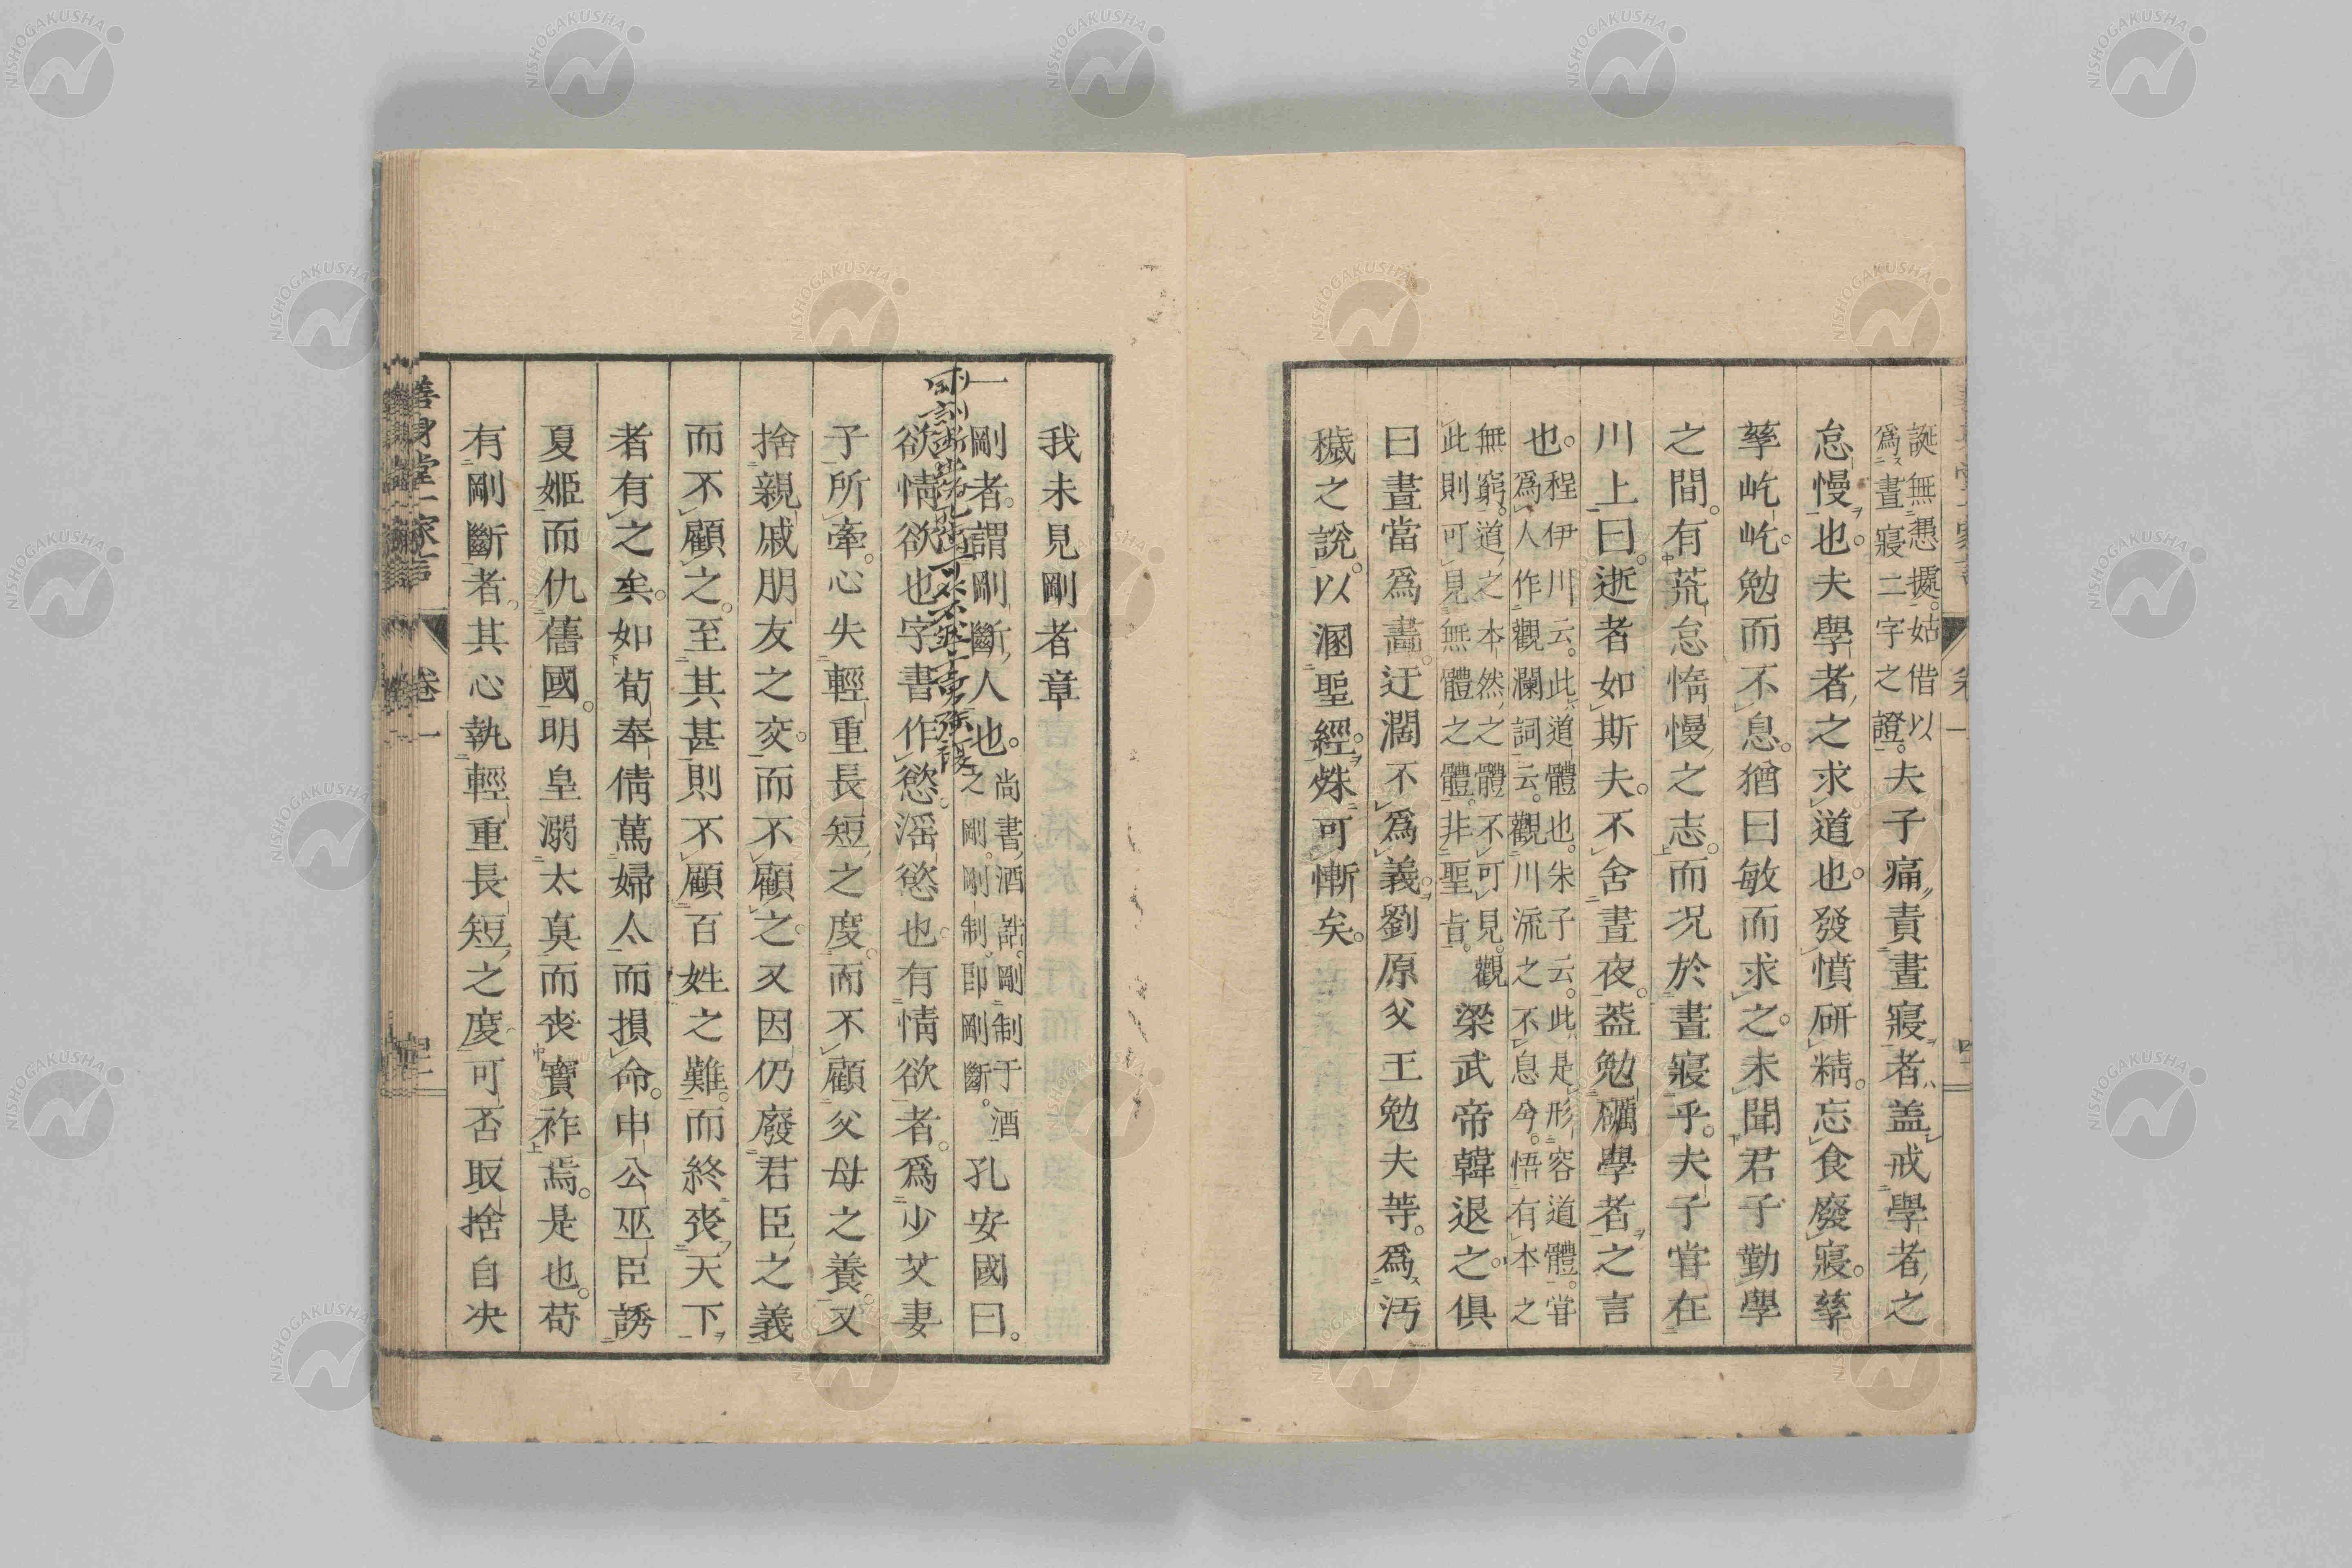 誕無愚擾。姑借以
爲晝寢二字之證。夫子痛責晝寢者。盖戒學者之
怠慢也。夫學者之求道也。發憤研精。忘食廢寢。孳
孳屹屹。勉而不息。猶曰敏而求之。未聞君子勤學
之間。有荒怠惰慢之志。而况於晝寢乎。夫子甞在
川上曰。逝者如斯夫。不舍晝夜。葢勉礪學者之言
也。程伊川云。此道體也。朱子云。此是形容道體。甞
爲人作觀瀾詞云。觀川流之不息兮。悟有本之
無窮。道之本然之體不可見。觀
此則可見無體之體。非聖旨。梁武帝韓退之。俱
曰晝當爲畵。迂濶不爲義。劉原父王勉夫等。爲汚
穢之說。以溷聖經。殊可慚矣。
我未見剛者章
一剛者。謂剛斷人也。尚書酒誥。剛制于酒
之剛。剛制。卽剛斷。孔安國曰。
欲情欲也。字書作慾。淫慾也。有情欲者。爲少艾妻
子所牽。心失輕重長短之度。而不顧父母之養。又
捨親戚朋友之交。而不顧之。又因仍廢君臣之義
而不顧之。至其甚則不顧百姓之難。而終喪天下
者有之矣。如荀奉倩蔦婦人而損命。申公巫臣誘
夏姬而仇舊國。明皇溺太眞而喪寶祚焉。是也。苟
有剛斷者。其心執輕重長短之度。可否取捨自决
善身堂一家言
卷一